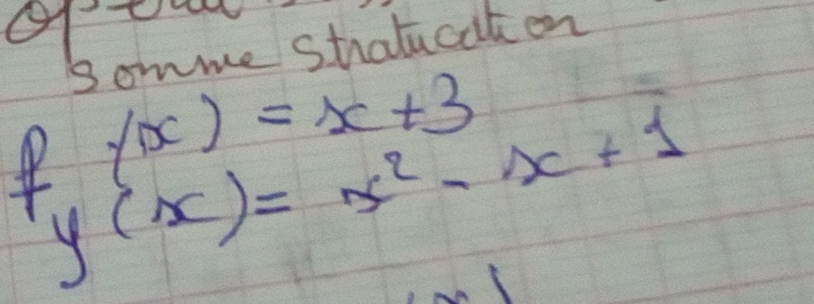 somme stratucation
f(x) = x + 3
y(x) = x² - x + 1